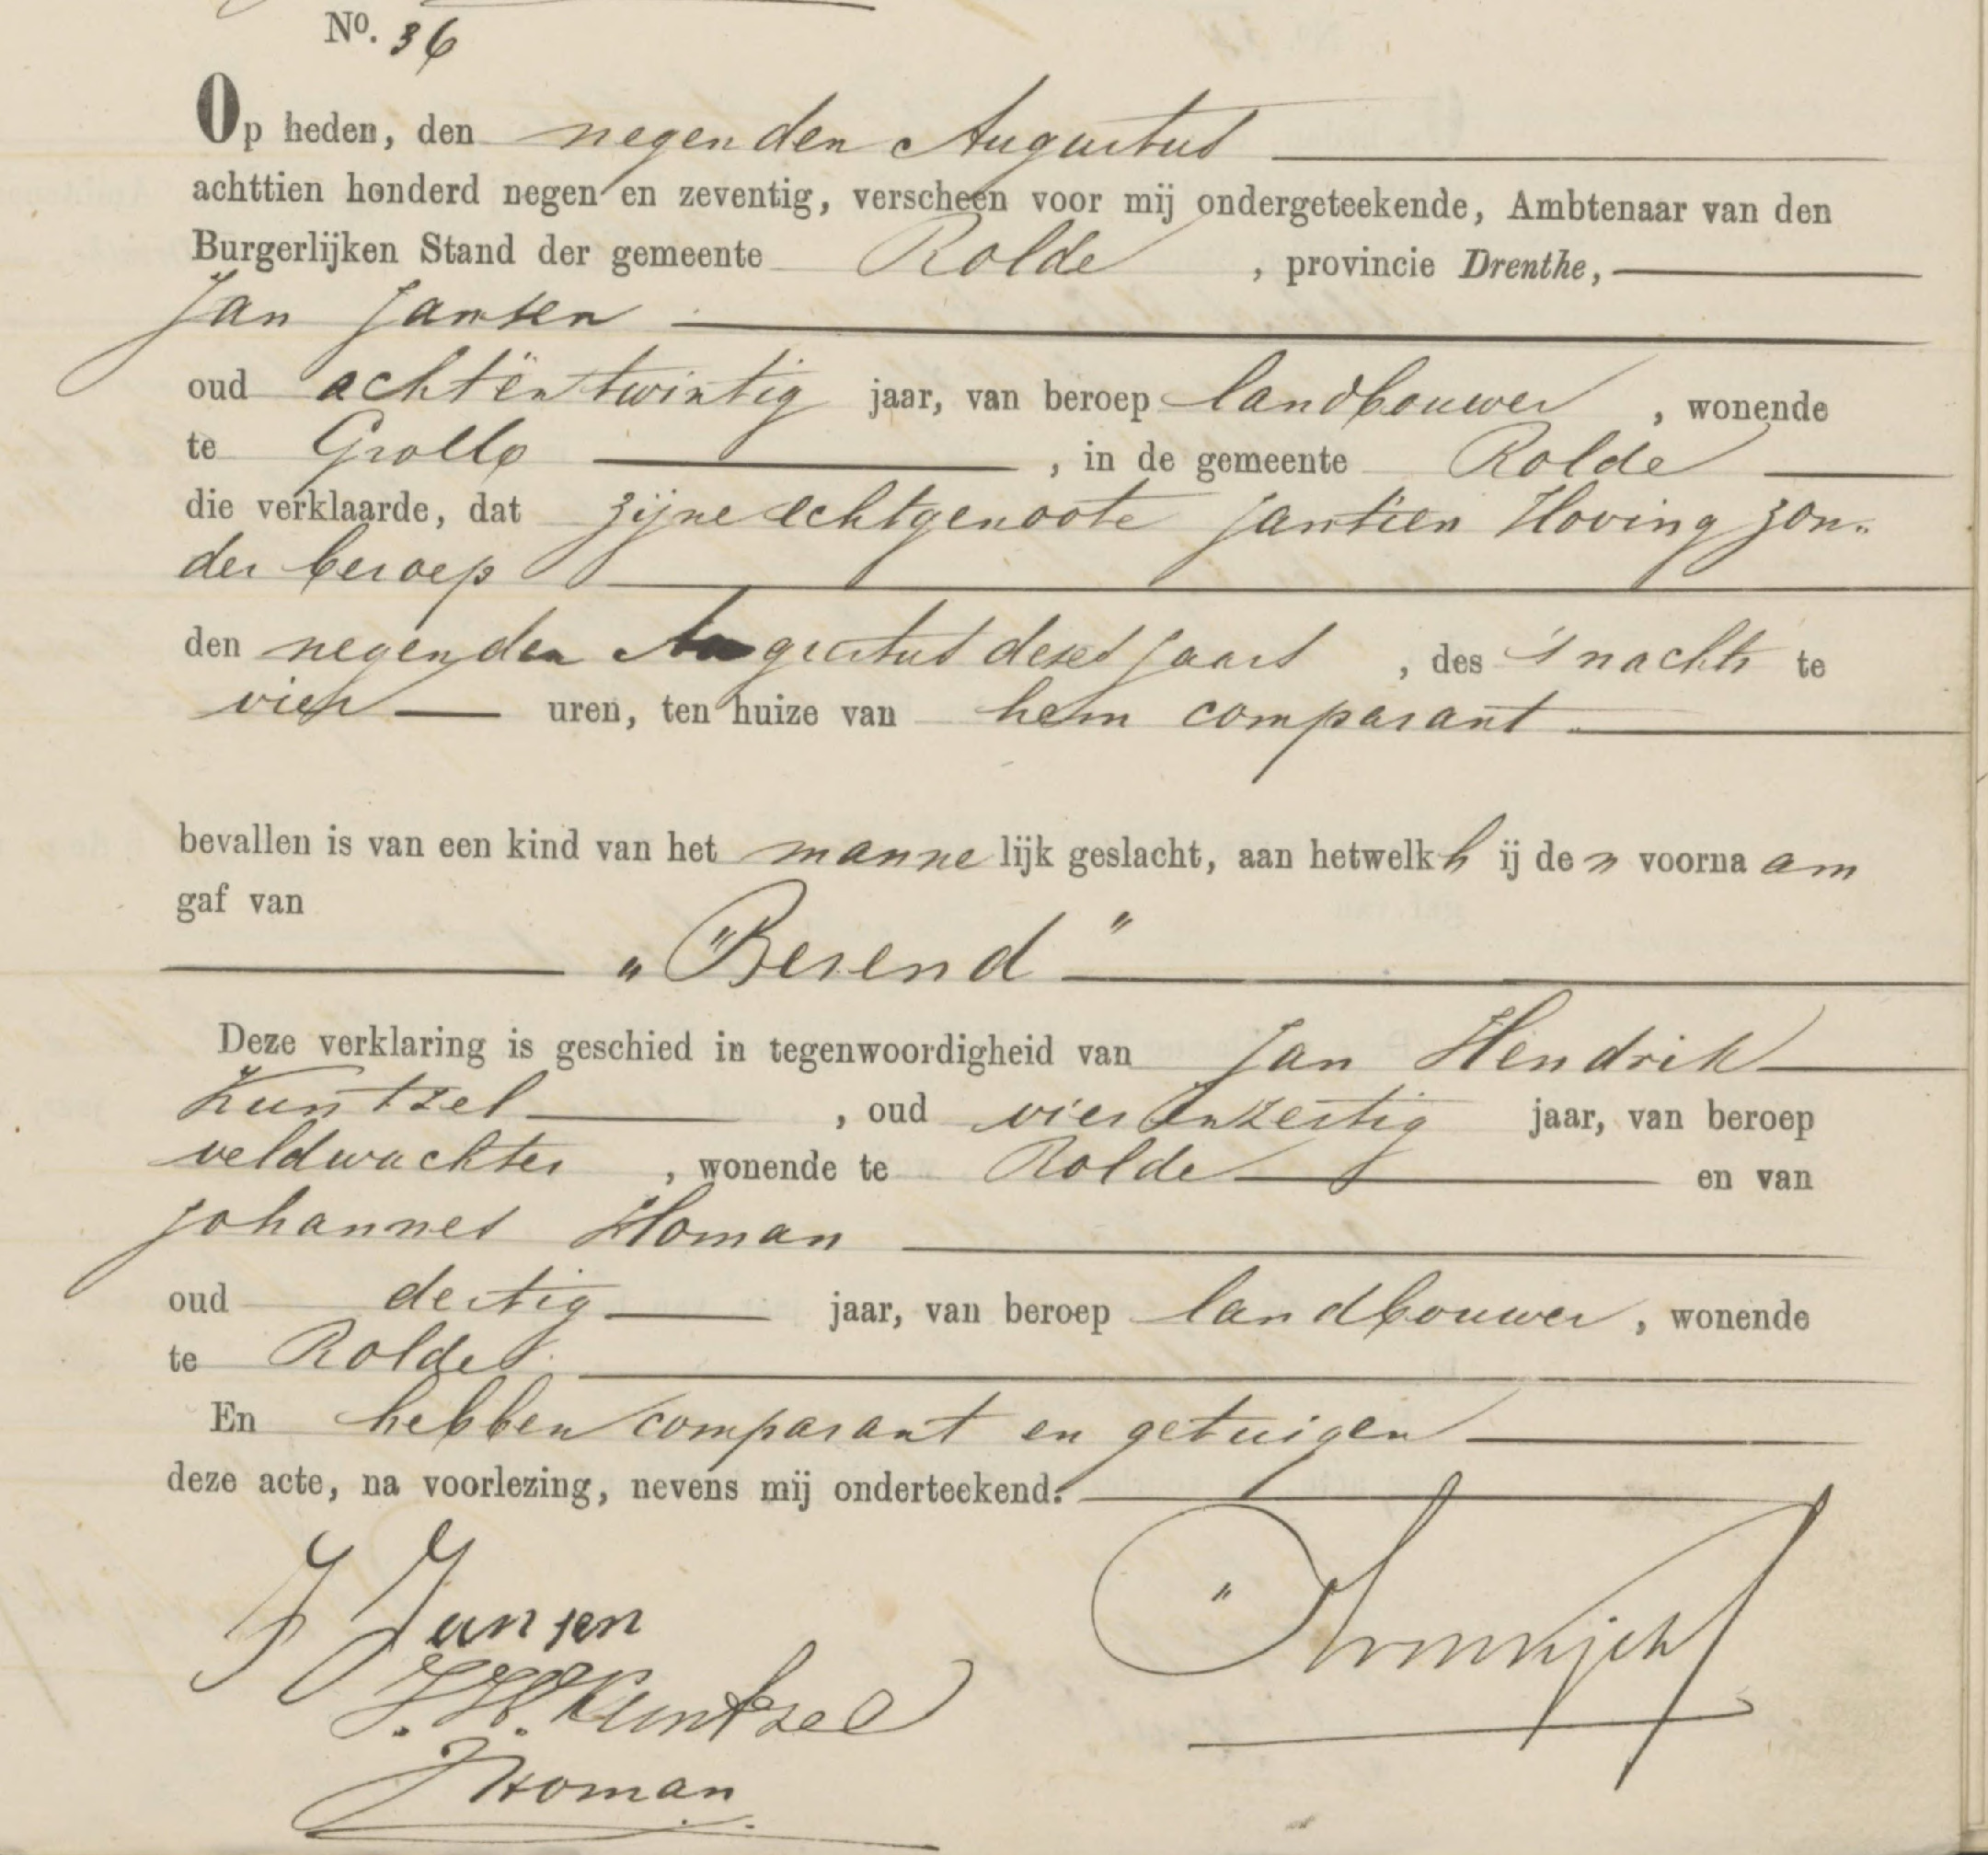 No. 36
Op heden, den negenden Augustus
achttien honderd negen en zeventig, verscheen voor mij ondergeteekende, Ambtenaar van den
Burgerlijken Stand der gemeente Rolde, provincie Drenthe,
Jan Jansen
oud achtëntwintig jaar, van beroep landbouwer, wonende
te Grollo, in de gemeente Rolde
die verklaarde, dat zijne echtgenoote Jantien Hoving zon„
der beroep
den negenden Augustus dezes jaars, des 's nachts te
vier uren, ten huize van hem comparant
bevallen is van een kind van het mannelijk geslacht, aan hetwelk hij den voornaam
gaf van
„Berend"
Deze verklaring is geschied in tegenwoordigheid van Jan Hendrik
Kuntzel, oud vierenzestig jaar, van beroep
veldwachter, wonende te Rolde en van
Johannes Homan
oud dertig jaar, van beroep landbouwer, wonende
te Rolde
En hebben comparant en getuigen
deze acte, na voorlezing, nevens mij onderteekend.
J Jansen
J. H. Kuntzel
J Homan